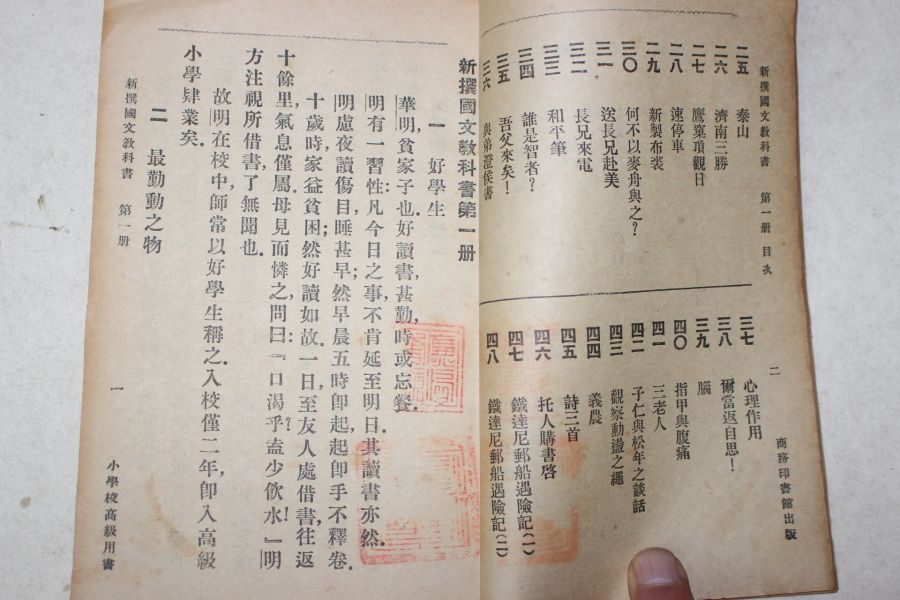 新撰國文教科書 第一册 目次
二五 泰山
二六 濟南三勝
二七 鷹窠頂觀日
二八 速停車
二九 新製布裘
三〇 何不以麥舟與之?
三一 送長兄赴美
三二 長兄來電
三三 和平筆
三四 誰是智者?
三五 吾父來矣!
三六 與弟澄侯書
三七 心理作用
三八 爾當返自思!
三九 腦
四〇 指甲與腹痛
四一 三老人
四二 子仁與松年之談話
四三 觀察動盪之繩
四四 義農
四五 詩二首
四六 托人購書啓
四七 鐵達尼郵船遇險記(一)
四八 鐵達尼郵船遇險記(二)
二
商務印書館出版
新撰國文教科書第一册
一 好學生
華明,貧家子也.好讀書,甚勤,時或忘餐.
明有一習性:凡今日之事,不肯延至明日.其讀書亦然.
明慮夜讀傷目,睡甚早;然早晨五時卽起,起卽手不釋卷.
十歲時,家益貧困,然好讀如故.一日,至友人處借書,往返
十餘里,氣息僅屬.母見而憐之,問曰:『口渴乎?盍少飮水!』明
方注視所借書,了無聞也.
故明在校中,師常以好學生稱之.入校僅二年,卽入高級
小學肄業矣.
二 最勤動之物
新撰國文教科書 第一册
一
小學校高級用書